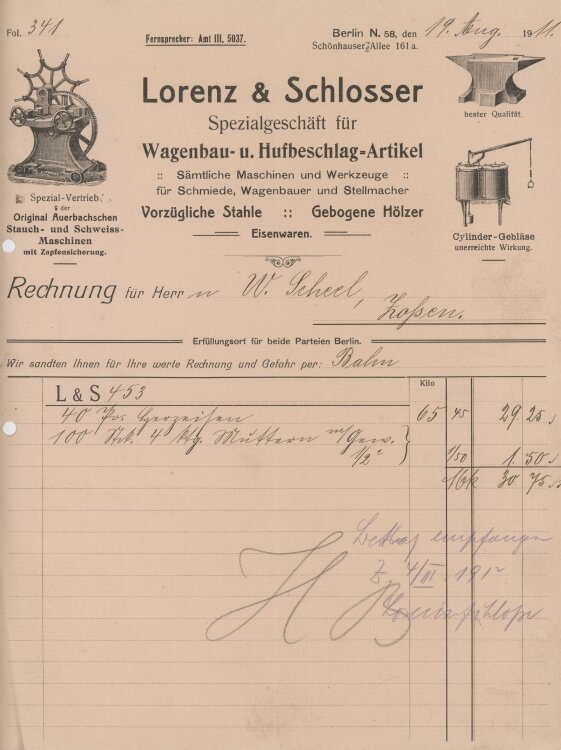 Fol. 341
Fernsprecher: Amt III, 5037.
Berlin N. 58, den 19. Aug. 1911.
Schönhauser Allee 161 a.
Lorenz & Schlosser
Spezialgeschäft für
Wagenbau- u. Hufbeschlag-Artikel
:: Sämtliche Maschinen und Werkzeuge ::
für Schmiede, Wagenbauer und Stellmacher
Vorzügliche Stahle :: Gebogene Hölzer
Eisenwaren.
bester Qualität.
Spezial-Vertrieb
der
Original Auerbachschen
Stauch- und Schweiss-
Maschinen
mit Zapfensicherung.
Cylinder-Gebläse
unerreichte Wirkung.
Rechnung für Herrn W. Scheel,
Zossen.
Erfüllungsort für beide Parteien Berlin.
Wir sandten Ihnen für Ihre werte Rechnung und Gefahr per: Bahn
Kilo
L & S 453
40 Pr. 65 45 29.25
100 Stck. 4 ktg. Muttern m/Gew.
1/2" 1/50 1.50
30.75
Betrag empfangen
4/III. 191